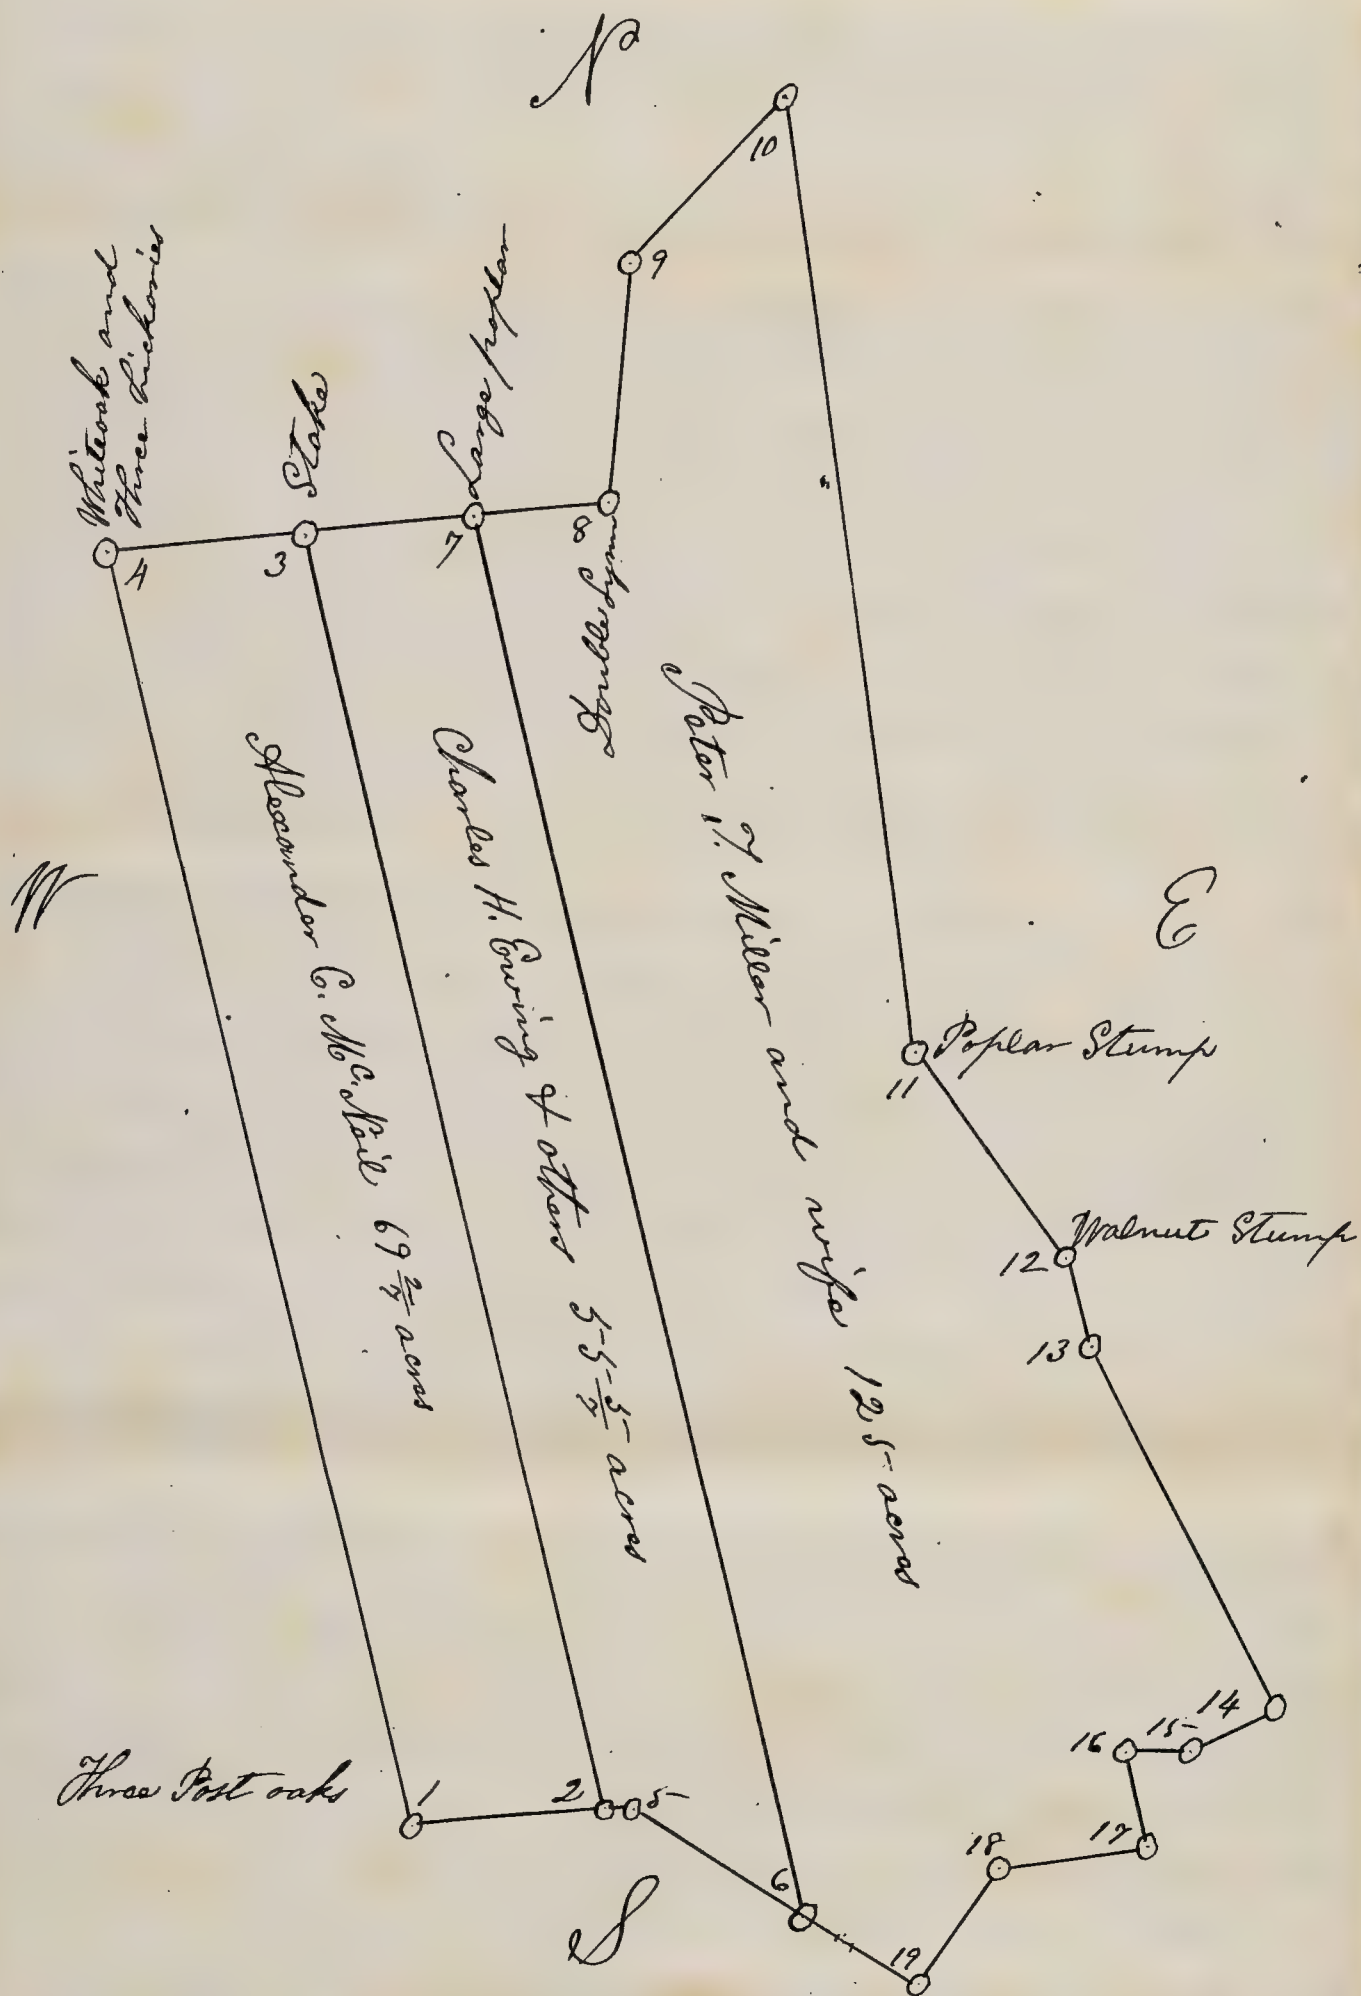 N
10
9
Whiteoak and
Three hickories
Stake
Large poplar
4
3
7
8
Doubles
W
E
Alexander C. McNeil 69 2/7 acres
Charles H. Ewing & others 55 5/7 acres
Peter T. Miller and wife 125 acres
11
Poplar Stump
12
Walnut Stump
13
14
15
16
17
18
19
Three Post oaks
1
2
5
6
S